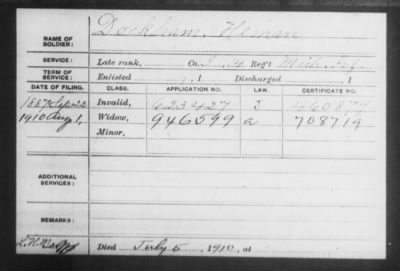 NAME OF SOLDIER: Dockham, Heman
SERVICE: Late rank, Co. I, 14 Reg't Mich. Inf.
TERM OF SERVICE: Enlisted , 1 Discharged , 1
DATE OF FILING. CLASS. APPLICATION NO. LAW. CERTIFICATE NO.
1887 Sep 22 Invalid, 623427 J 460879
1910 Aug 1, Widow, 946599 a 708719
Minor,
ADDITIONAL SERVICES:
REMARKS:
Died July 5, 1910, at